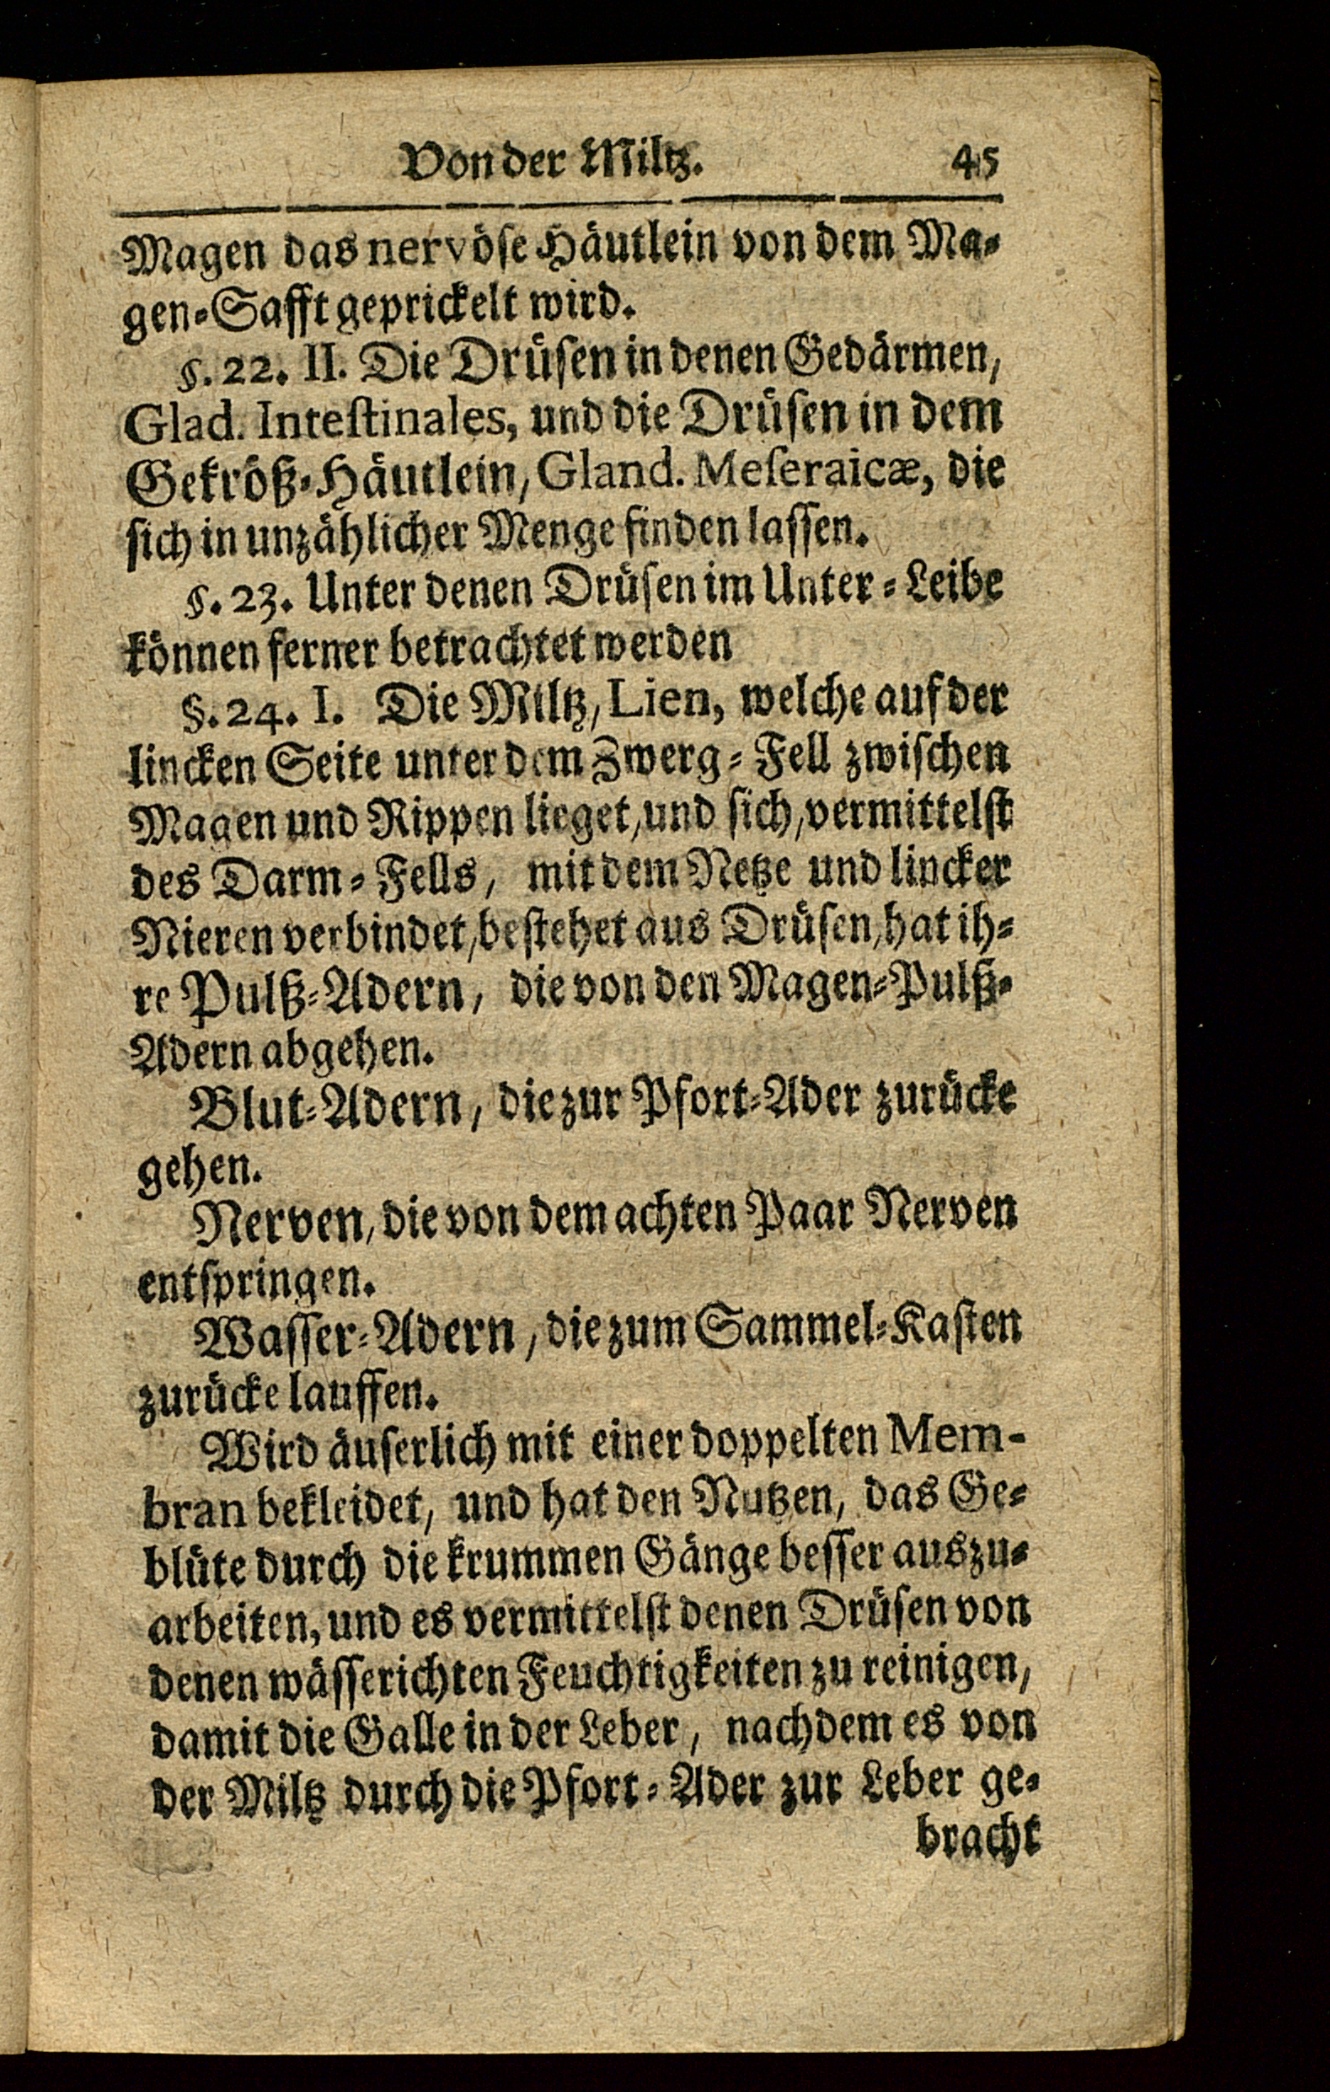 Von der Miltz. 45
Magen das nervöse Häutlein von dem Ma-
gen-Safft geprickelt wird.
§. 22. II. Die Drüsen in denen Gedärmen,
Glad. Intestinales, und die Drüsen in dem
Gekröß-Häutlein, Gland. Meseraicæ, die
sich in unzählicher Menge finden lassen.
§. 23. Unter denen Drüsen im Unter-Leibe
können ferner betrachtet werden
§. 24. I. Die Miltz, Lien, welche auf der
lincken Seite unter dem Zwerg-Fell zwischen
Magen und Rippen lieget, und sich, vermittelst
des Darm-Fells, mit dem Netze und lincker
Nieren verbindet, bestehet aus Drüsen, hat ih-
re Pulß-Adern, die von den Magen-Pulß-
Adern abgehen.
Blut-Adern, die zur Pfort-Ader zurücke
gehen.
Nerven, die von dem achten Paar Nerven
entspringen.
Wasser-Adern, die zum Sammel-Kasten
zurücke lauffen.
Wird äuserlich mit einer doppelten Mem-
bran bekleidet, und hat den Nutzen, das Ge-
blüte durch die krummen Gänge besser auszu-
arbeiten, und es vermittelst denen Drüsen von
denen wässerichten Feuchtigkeiten zu reinigen,
damit die Galle in der Leber, nachdem es von
der Miltz durch die Pfort-Ader zur Leber ge-
bracht